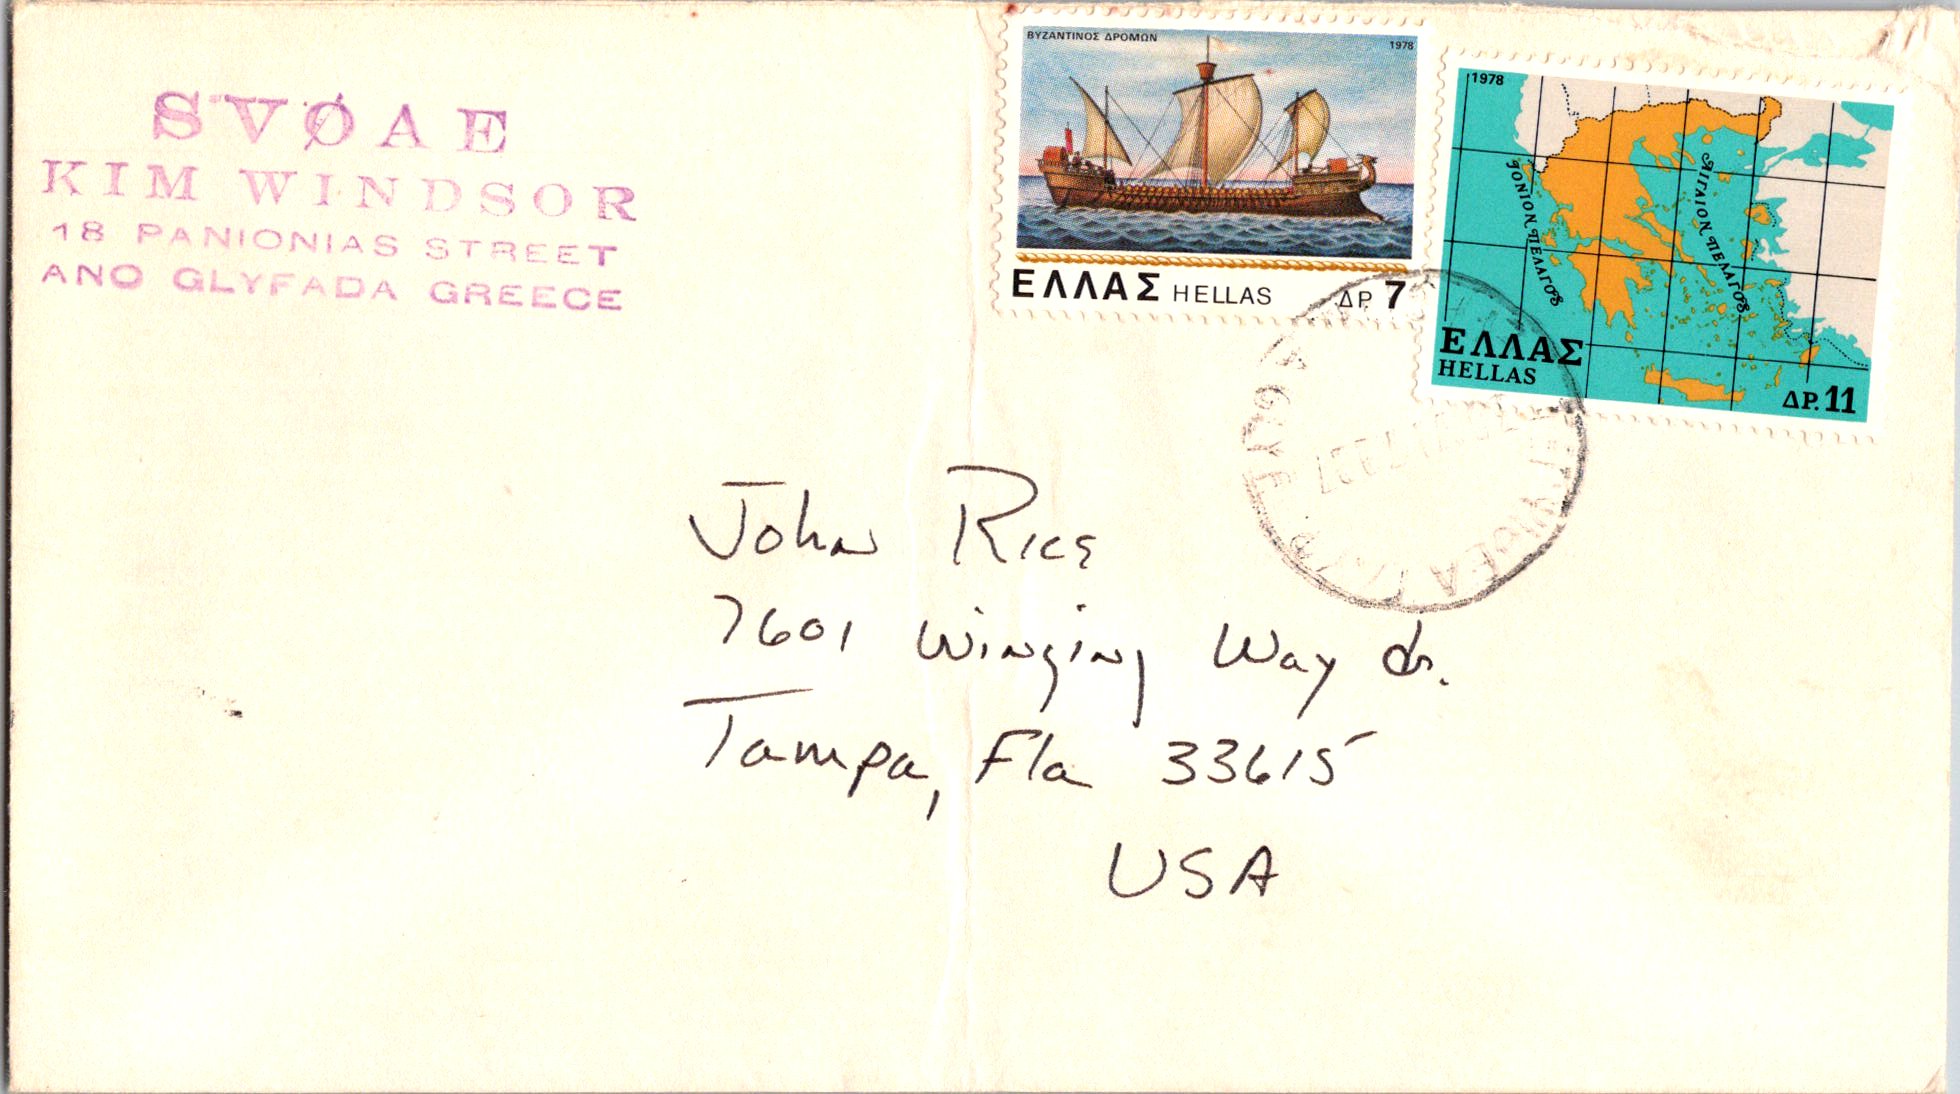 SVØAE
KIM WINDSOR
18 PANIONIAS STREET
ANO GLYFADA GREECE
ΒΥΖΑΝΤΙΝΟΣ ΔΡΟΜΩΝ 1978
ΕΛΛΑΣ HELLAS ΔΡ. 7
1978
ΙΟΝΙΟΝ ΠΕΛΑΓΟΣ
ΑΙΓΑΙΟΝ ΠΕΛΑΓΟΣ
ΕΛΛΑΣ
HELLAS
ΔΡ. 11
John Rice
7601 Winging Way dr.
Tampa, Fla 33615
USA